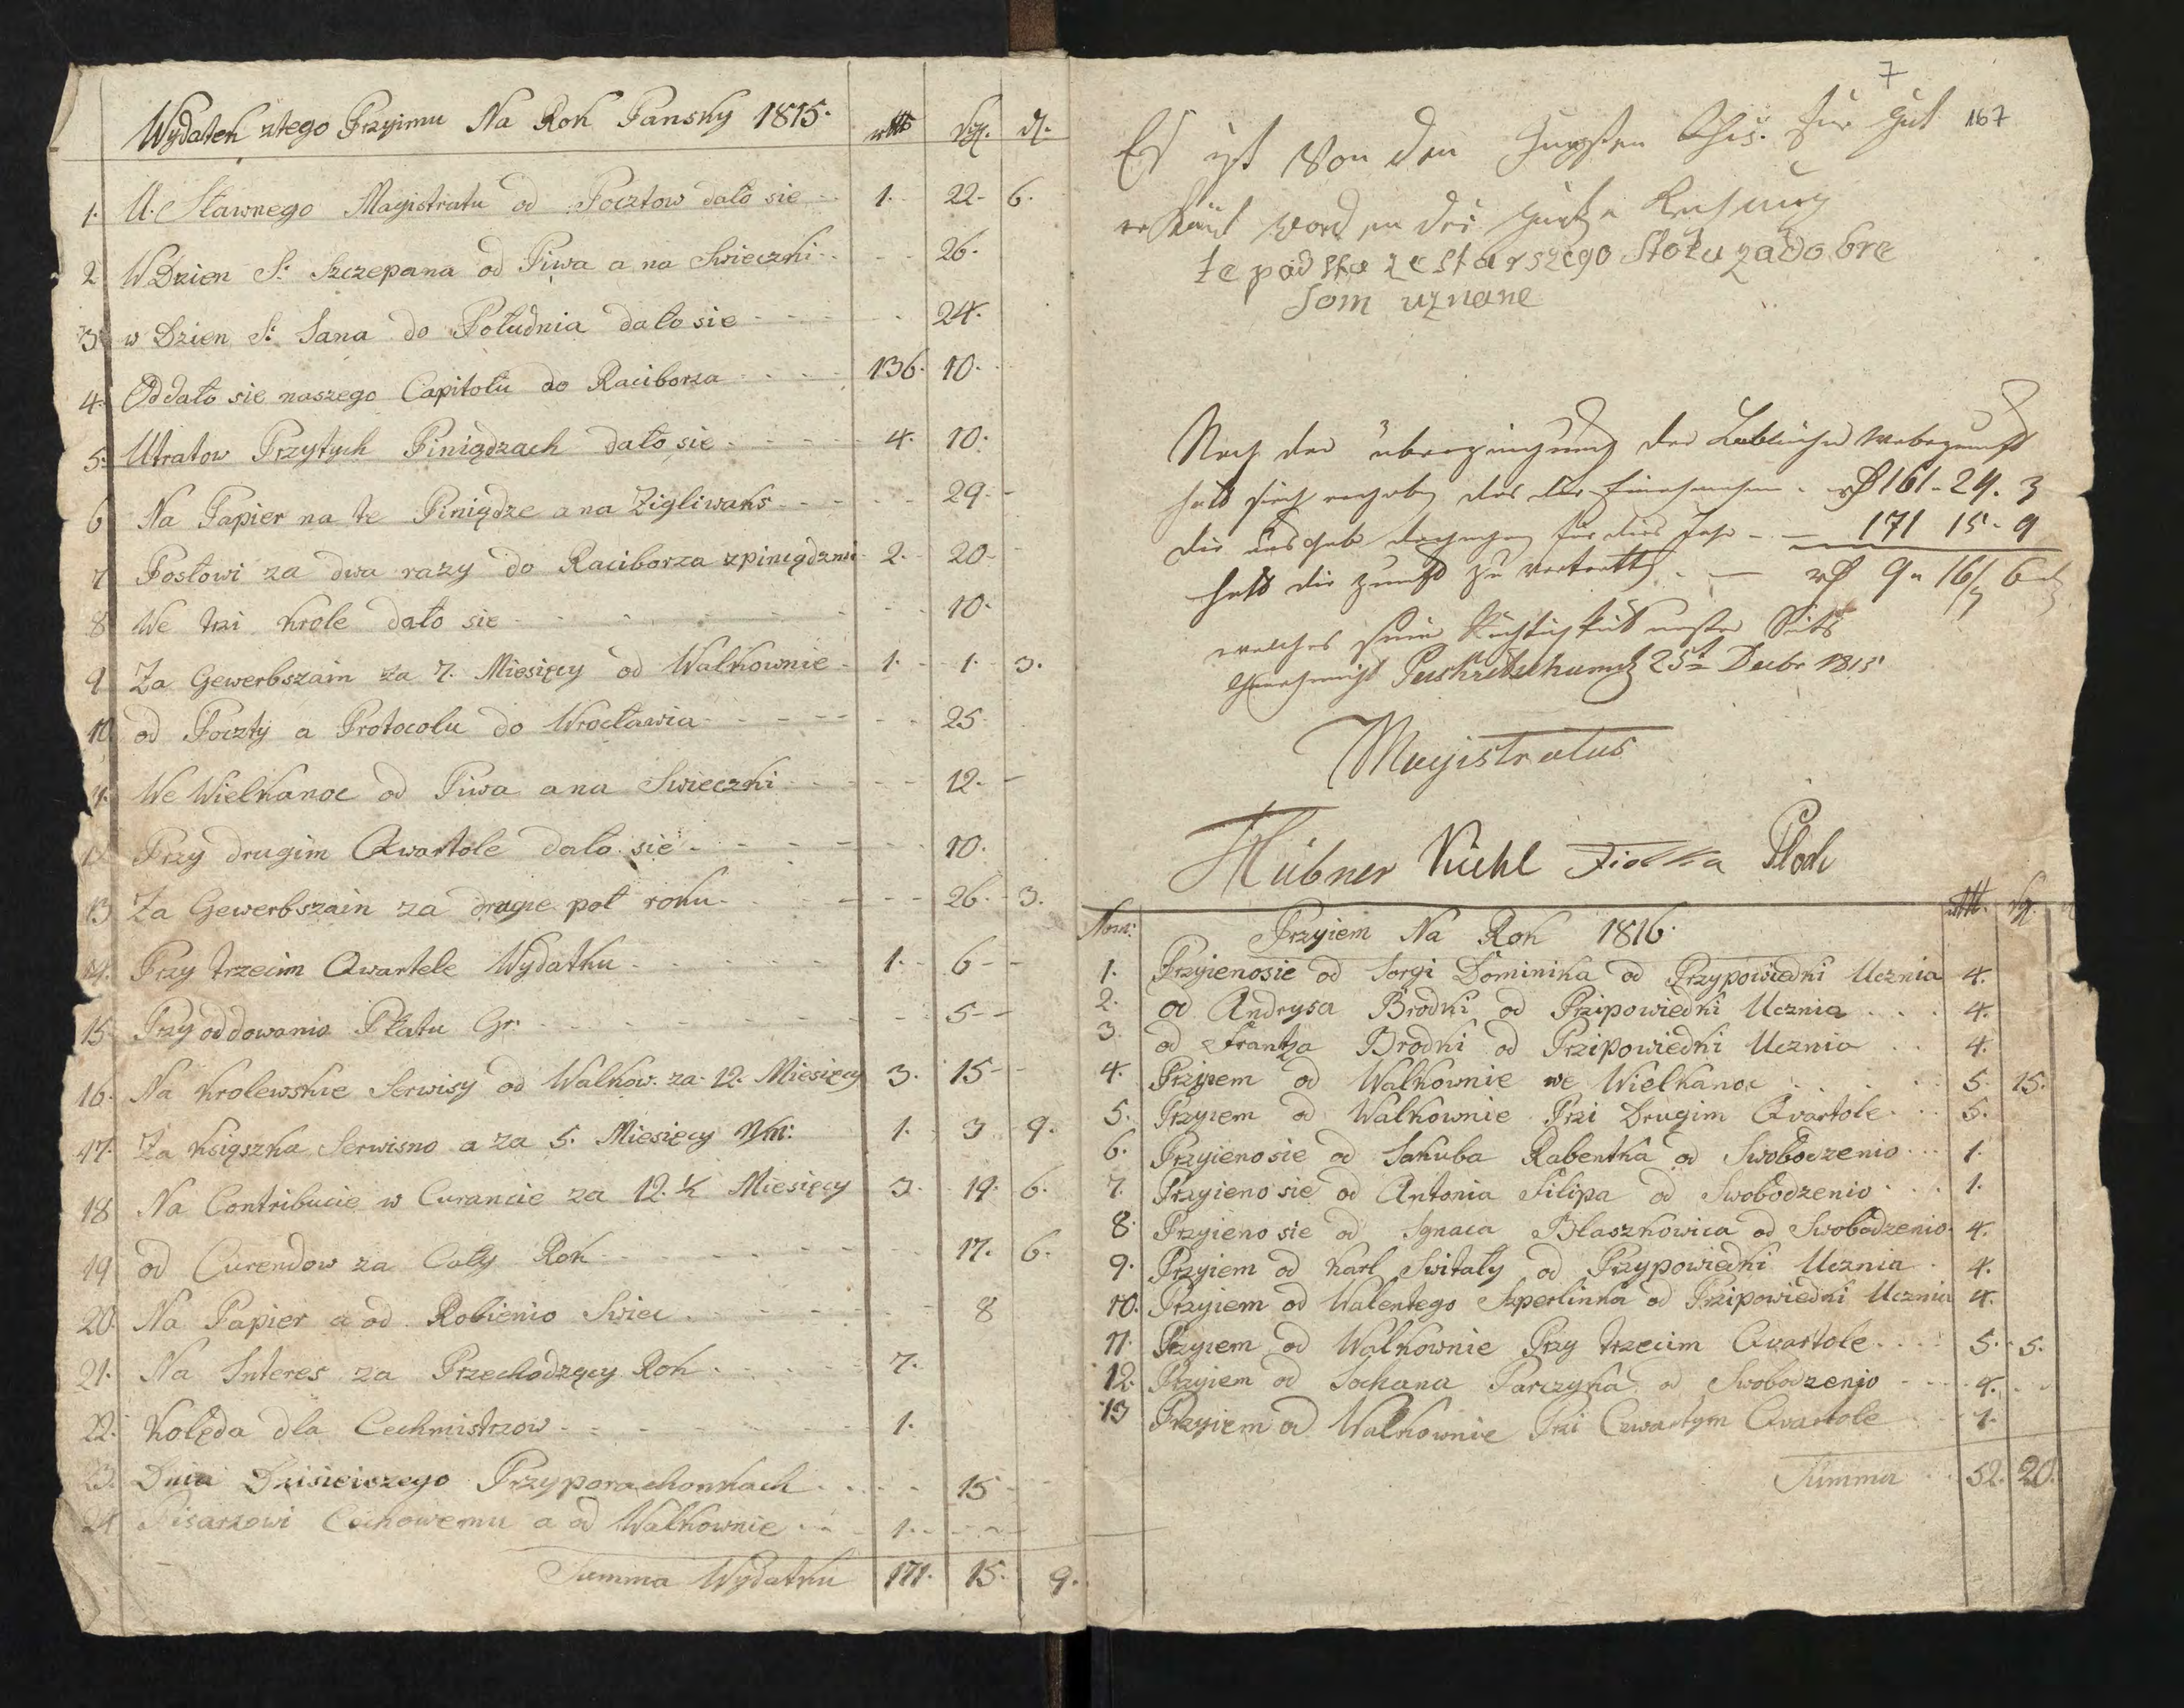 Wydatek ztego Przyimu Na Rok Pansky 1815.
1. U. Sławnego Magistratu od Pocztow dało sie 1. 22. 6.
2 W Dzien S: Szczepana od Piwa a na Swieczki 26.
3. w Dzien S: Jana do Południa dało sie 24.
4. Oddało sie naszego Capitołu do Raciborza 136. 10.
5. Utratow Przytych Piniądzach dało sie 4. 10.
6 Na Papier na te Piniądze a na Zigliwaks 29.
7 Posłowi za dwa razy do Raciborza zpiniądzmi 2. 20
8 We trzi krole dało sie 10.
9 Za Gewerbszain za 7. Miesięcy od Walkownie 1. 1. 3.
10 od Poczty a Protocolu do Wrocławia 25
11. We Wielkanoc od Piwa a na Swieczki 12.
12 Przy drugim Qwartole dało sie 10.
13 Za Gewerbszain za drugie poł roku 26. 3.
14. Przy trzecim Qwartele Wydatku 1. 6
15 Przy oddowanio Płatu Gr. 5
16. Na krolewskie Serwisy od Walkow. za 12. Miesięcy 3. 15
17. Za Ksiąszka Serwisno a za 5. Miesięcy 1. 3 9.
18 Na Contribucie w Curancie za 12. ½ Miesięcy 3. 19. 6.
19 od Curendow za Cały Rok 17. 6.
20. Na Papier a od Robienio Swiec 8
21. Na Interes za Przechodzący Rok 7.
22. Kolęda dla Cechmistrzow 1.
23. Dnia Dzisieiszego Przyporachonkach 15
24 Pisarzowi Cechowemu a od Walkownie 1.
Summa Wydatku 171. 15. 9.
7
167
Es ist von den für gut
erkänt worden die Rechnung
te podług ze starszego Stołu za dobre
som uznane
Nach der der
hatt sich das die Einnahme 161. 24. 3
die aus gab dagegen für dies Jahr 171 15. 9
hatt die Zunft zu 9. 16 6
welches Richtigkeit
25t Decbr 1815
Magistratus
Hübner Kuehl Fiolka Ploch
Nom: Przyiem Na Rok 1816.
1. Przyienosie od Jorgi Dominika od Przypowiedki Ucznia 4.
2. od Andrysa Brodki od Przipowiedki Ucznia 4.
3. od Frantza Brodki od Przipowiedki Ucznia 4.
4. Przyiem od Walkownie we Wielkanoc 5. 15.
5. Przyiem od Walkownie Przi Drugim Qvartole 5.
6. Przyienosie od Jakuba Rabentka od Swobodzenio 1.
7. Przyienosie od Antonia Filipa od Swobodzenio 1.
8. Przyienosie od Ignaca Błaszkowica od Swobodzenio 4.
9. Przyiem od Karl Switały od Przypowiedki Ucznia 4.
10. Przyiem od Walentego Szperlinka od Przipowiedki Ucznia 4.
11. Przyiem od Walkownie Przy trzecim Qvartole 5. 5.
12. Przyiem od Jochana Parczyka od Swobodzenio 4.
13 Przyiem od Walkownie Przi Czwartym Qvartole 1.
Summa 52. 20.